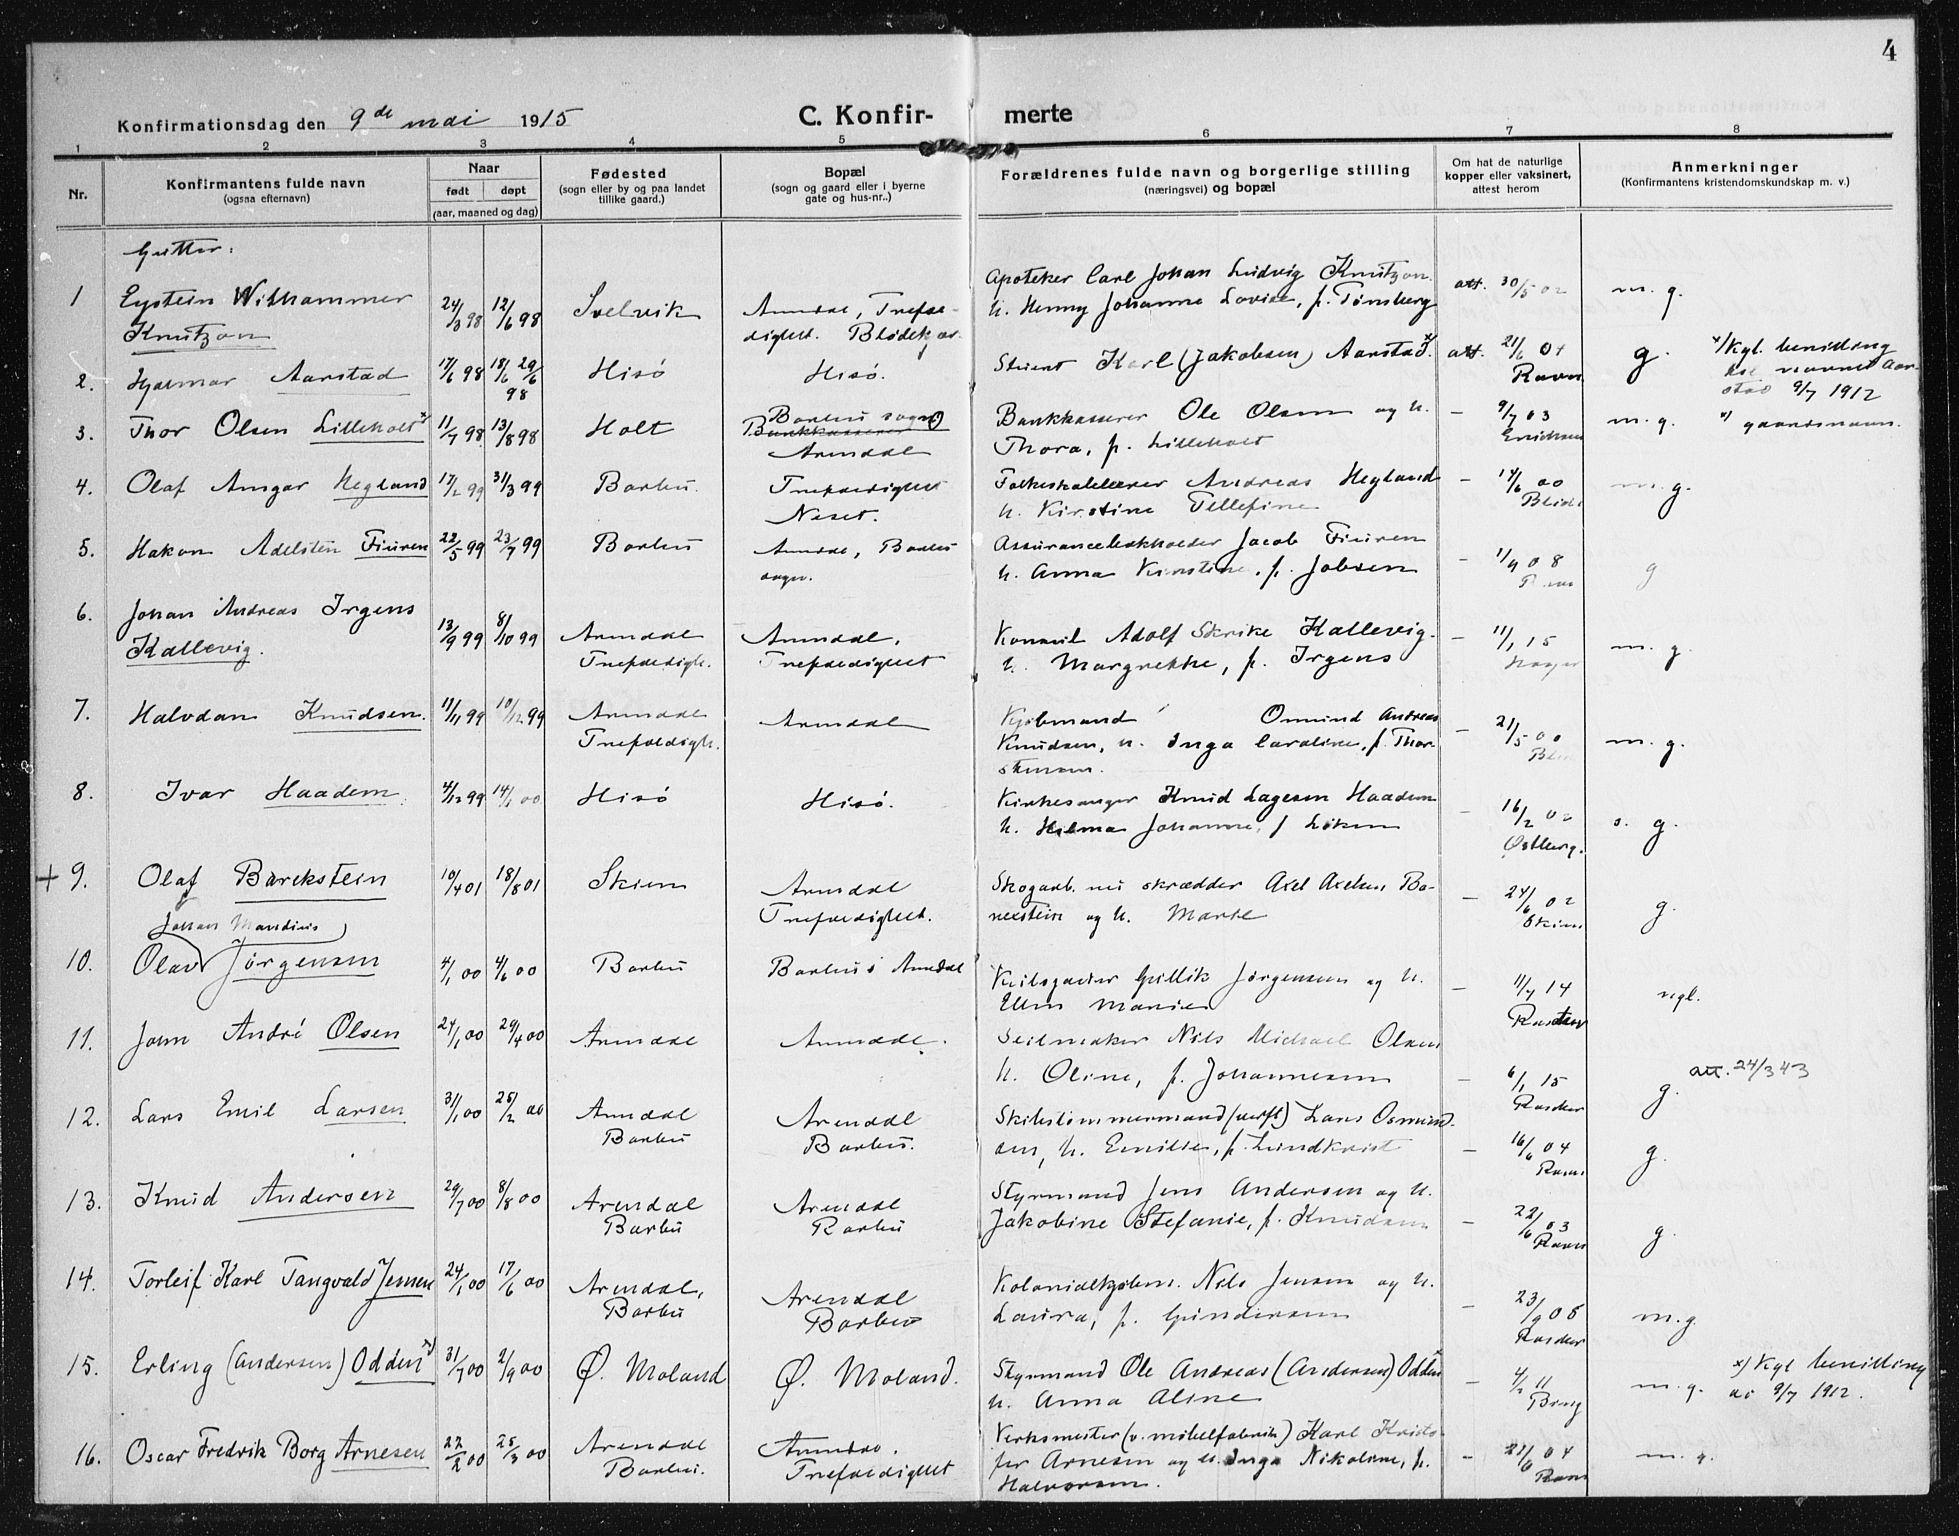 4
Konfirmationsdag den 9de mai 1915
C. Konfir- merte
1 2 3 4 5 6 7 8
Nr.
Konfirmantens fulde navn
(ogsaa efternavn)
Naar
født døpt
(aar, maaned og dag)
Fødested
(sogn eller by og paa landet
tillike gaard.)
Bopæl
(sogn og gaard eller i byerne
gate og hus-nr..)
Forældrenes fulde navn og borgerlige stilling
(næringsvei) og bopæl
Om hat de naturlige
kopper eller vaksinert,
attest herom
Anmerkninger
(Konfirmantens kristendomskundskap m. v.)
Gutter:
1 Eystein Withammer
Knutzon
24/3 98 12/6 98 Svelvik Arendal, Trefol-
dighet. Blødekjær
Apoteker Carl Johan Ludvig Knutzon
h. Henny Johanne Lovise, f. Tønsberg
att. 30/5 02 m. g.
2. Hjalmar Aarstad 17/6 98 18/6 29/6
98
Hisø Hisø. Student Karl (Jakobsen) Aarstad x att. 21/6 04
Ravn
g. x/ Kgl. bevilling
til navnet Aar-
stad 9/7 1912
3. Thor Olsen Lilleholt x 11/7 98 13/8 98 Holt Barbu sogn
Bankkasserer
Arendal
Bankkasserer Ole Olsen og h.
Thora, f. Lilleholt
— 9/7 03
Erichsen
m. g. x/ gaardsnavn.
4. Olaf Ansgar Hegland 17/2 99 31/3 99 Barbu. Trefoldighet
Neset.
Folkeskolelærer Andreas Hegland
h. Kirstine Tellefine
— 14/6 00
m. g.
5. Hakon Adelsten Fiuren 22/5 99 23/7 99 Barbu Arendal, Barbu
sogn.
Assurancebokholder Jacob Fiuren
h. Anna Kirstine, f. Jobsen
— 11/9 08
g
6. Johan Andreas Irgens
Kallevig.
13/9 99 8/10 99 Arendal
Trefoldigh.
Arendal,
Trefoldighet
Konsul Adolf Skrike Kallevig.
h. Margrethe, f. Irgens
— 11/1 15
m. g.
7. Halvdan Knudsen. 17/11 99 10/12 99 Arendal
Trefoldigh.
Arendal
Kjøbmand Omund Andreas
Knudsen, h. Inga Caroline, f. Thor-
stensen.
— 21/5 00
m. g.
8. Ivar Haadem 4/12 99 14/1 00 Hisø Hisø.
Kirkesanger Knud Lagesen Haadem
h. Hilma Johanne, f Løken
16/2 02
Østberg.
s. g.
+ 9. Olaf Barckstein 10/4 01 18/8 01 Skien Arendal
Trefoldighet.
Skogarb. nu skrædder Axel Axelsen Ba-
rckstein og h. Marie
— 24/6 02
Skien
g.
Johan Mandius
10. Olav Jørgensen 4/1 00 4/6 00 Barbu Barbu i Arendal
Jørgensen og h.
Ellen Marie
— 11/7 14
ngl.
11. John André Olsen 24/1 00 29/4 00 Arendal Arendal.
Seilmaker Nils Michael Olsen
h. Oline, f. Johannesen
— 6/1 15
g. att. 24/3 43
12. Lars Emil Larsen 31/1 00 25/2 00 Arendal
Barbu
Arendal
Barbu.
Skibstømmermand (verft) Lars Osmund-
sen, h. Emilie, f. Lundkvist
— 16/6 04
Ravn
g.
13. Knud Andersen 29/7 00 8/8 00 Arendal
Barbu
Arendal
Barbu
Styrmand Jens Andersen og h.
Jakobine Stefanie, f. Knudsen
— 22/6 03
Ravn
g.
14. Torleif Karl Tangvald Jensen 24/1 00 17/6 00 Arendal,
Barbu
Arendal
Barbu
Kolonialkjøbm. Nils Jensen og h.
Laura, f. Gundersen
— 23/9 08
m. g
15. Erling (Andersen) Odden x) 31/7 00 2/9 00 Ø. Moland Ø. Moland.
Styrmand Ole Andreas (Andersen) Odden x
h. Anna Aline
— 4/2 11
m. g. x/ Kgl bevilling
av 9/7 1912.
16. Oscar Fredrik Borg Arnesen 22/2 00 25/3 00 Arendal
Barbu.
Arendal.
Trefoldighet
Verksmester (v. møbelfabrik) Karl Kristo-
fer Arnesen og h. Inga Nikoline, f.
Halvorsen.
— 21/6 04
Ravn
m. g.